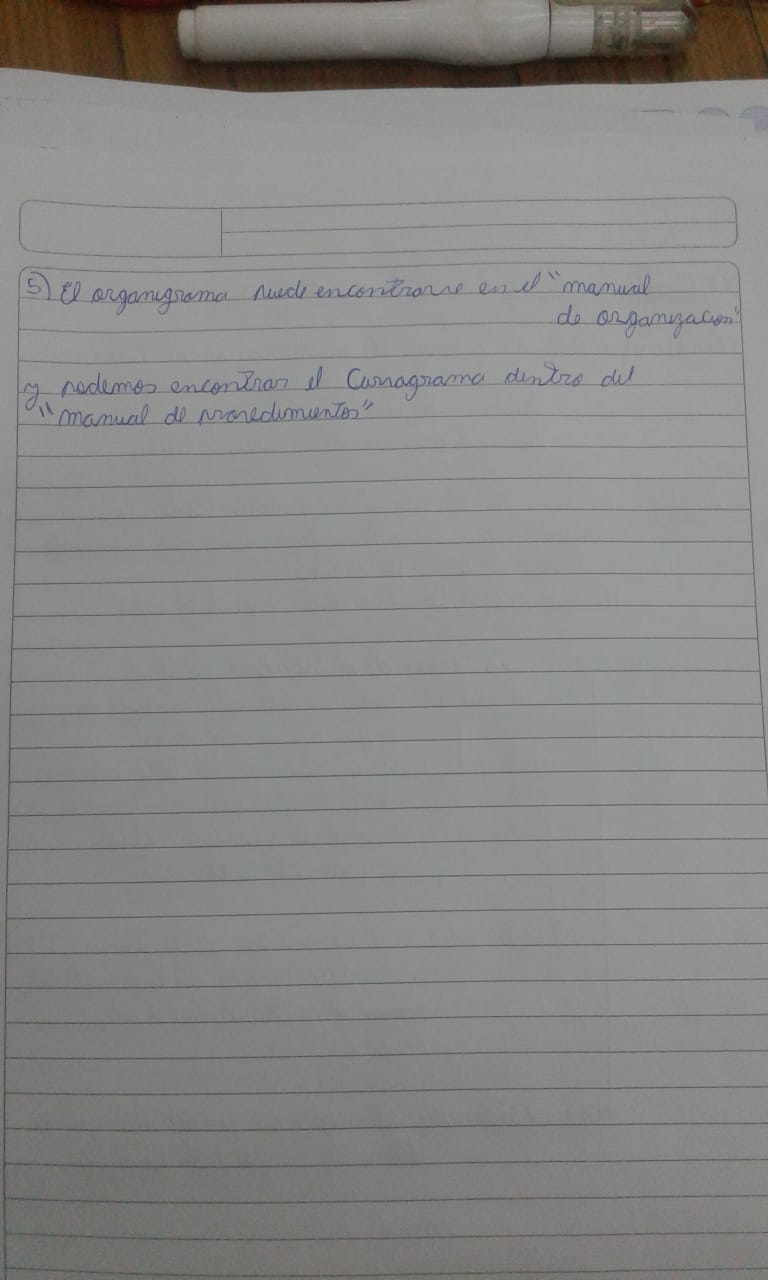 5) El organigrama puede encontrarse en el "manual
de organizacion"
y podemos encontrar el Cursograma dentro del
"manual de procedimientos"